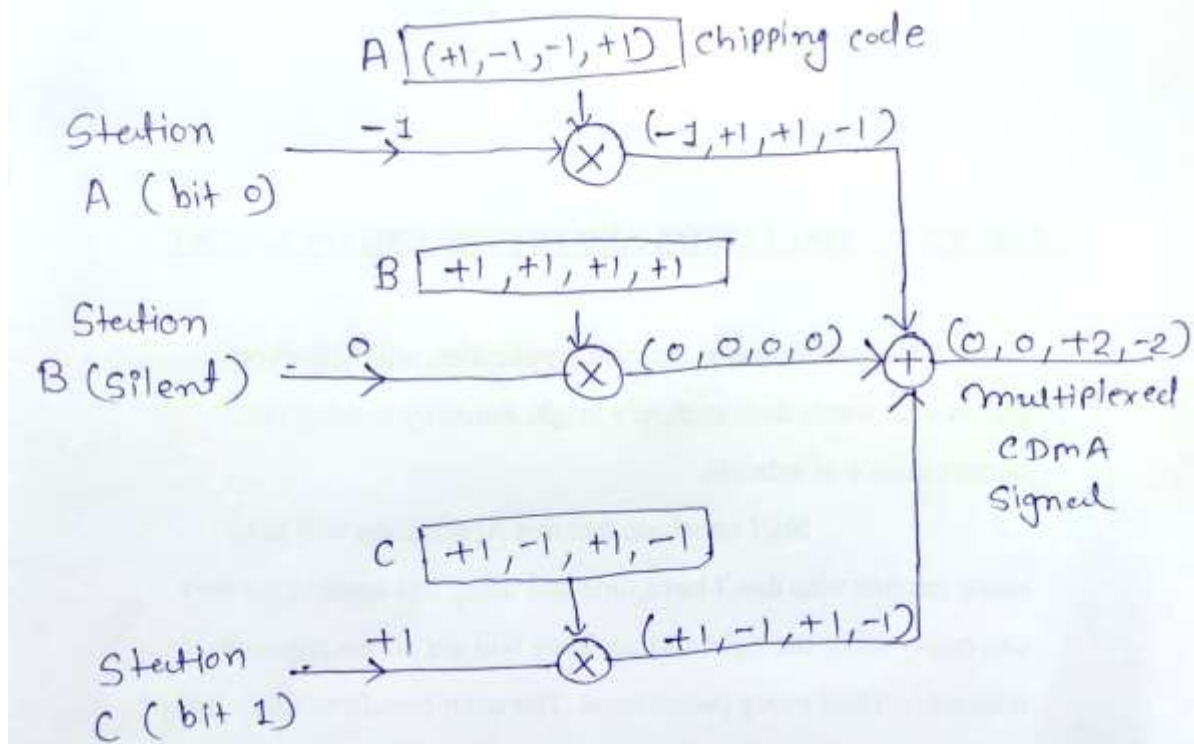 A (+1,-1,-1,+1) chipping code
Station
A (bit 0)
-1
(-1,+1,+1,-1)
B +1,+1,+1,+1
Station
B (Silent)
0
(0,0,0,0)
(0,0,+2,-2)
multiplexed
CDMA
Signal
C +1,-1,+1,-1
Station
C (bit 1)
+1
(+1,-1,+1,-1)
X
X
+
X